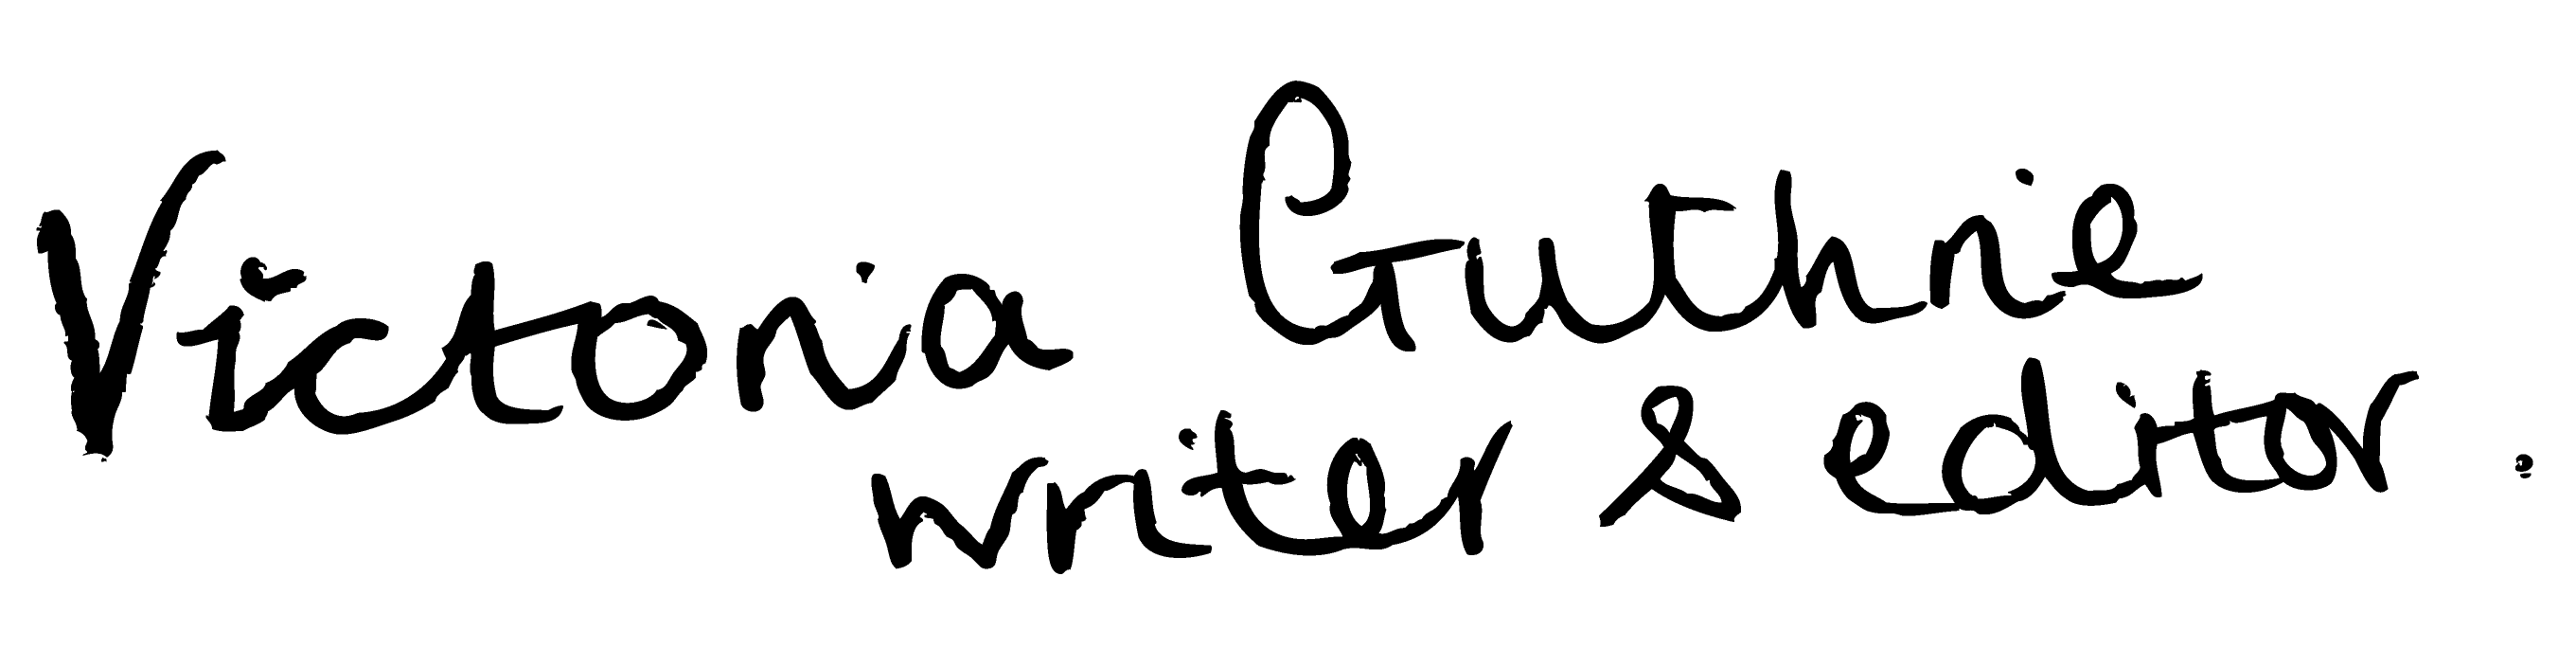 Victoria Guthrie
writer & editor.